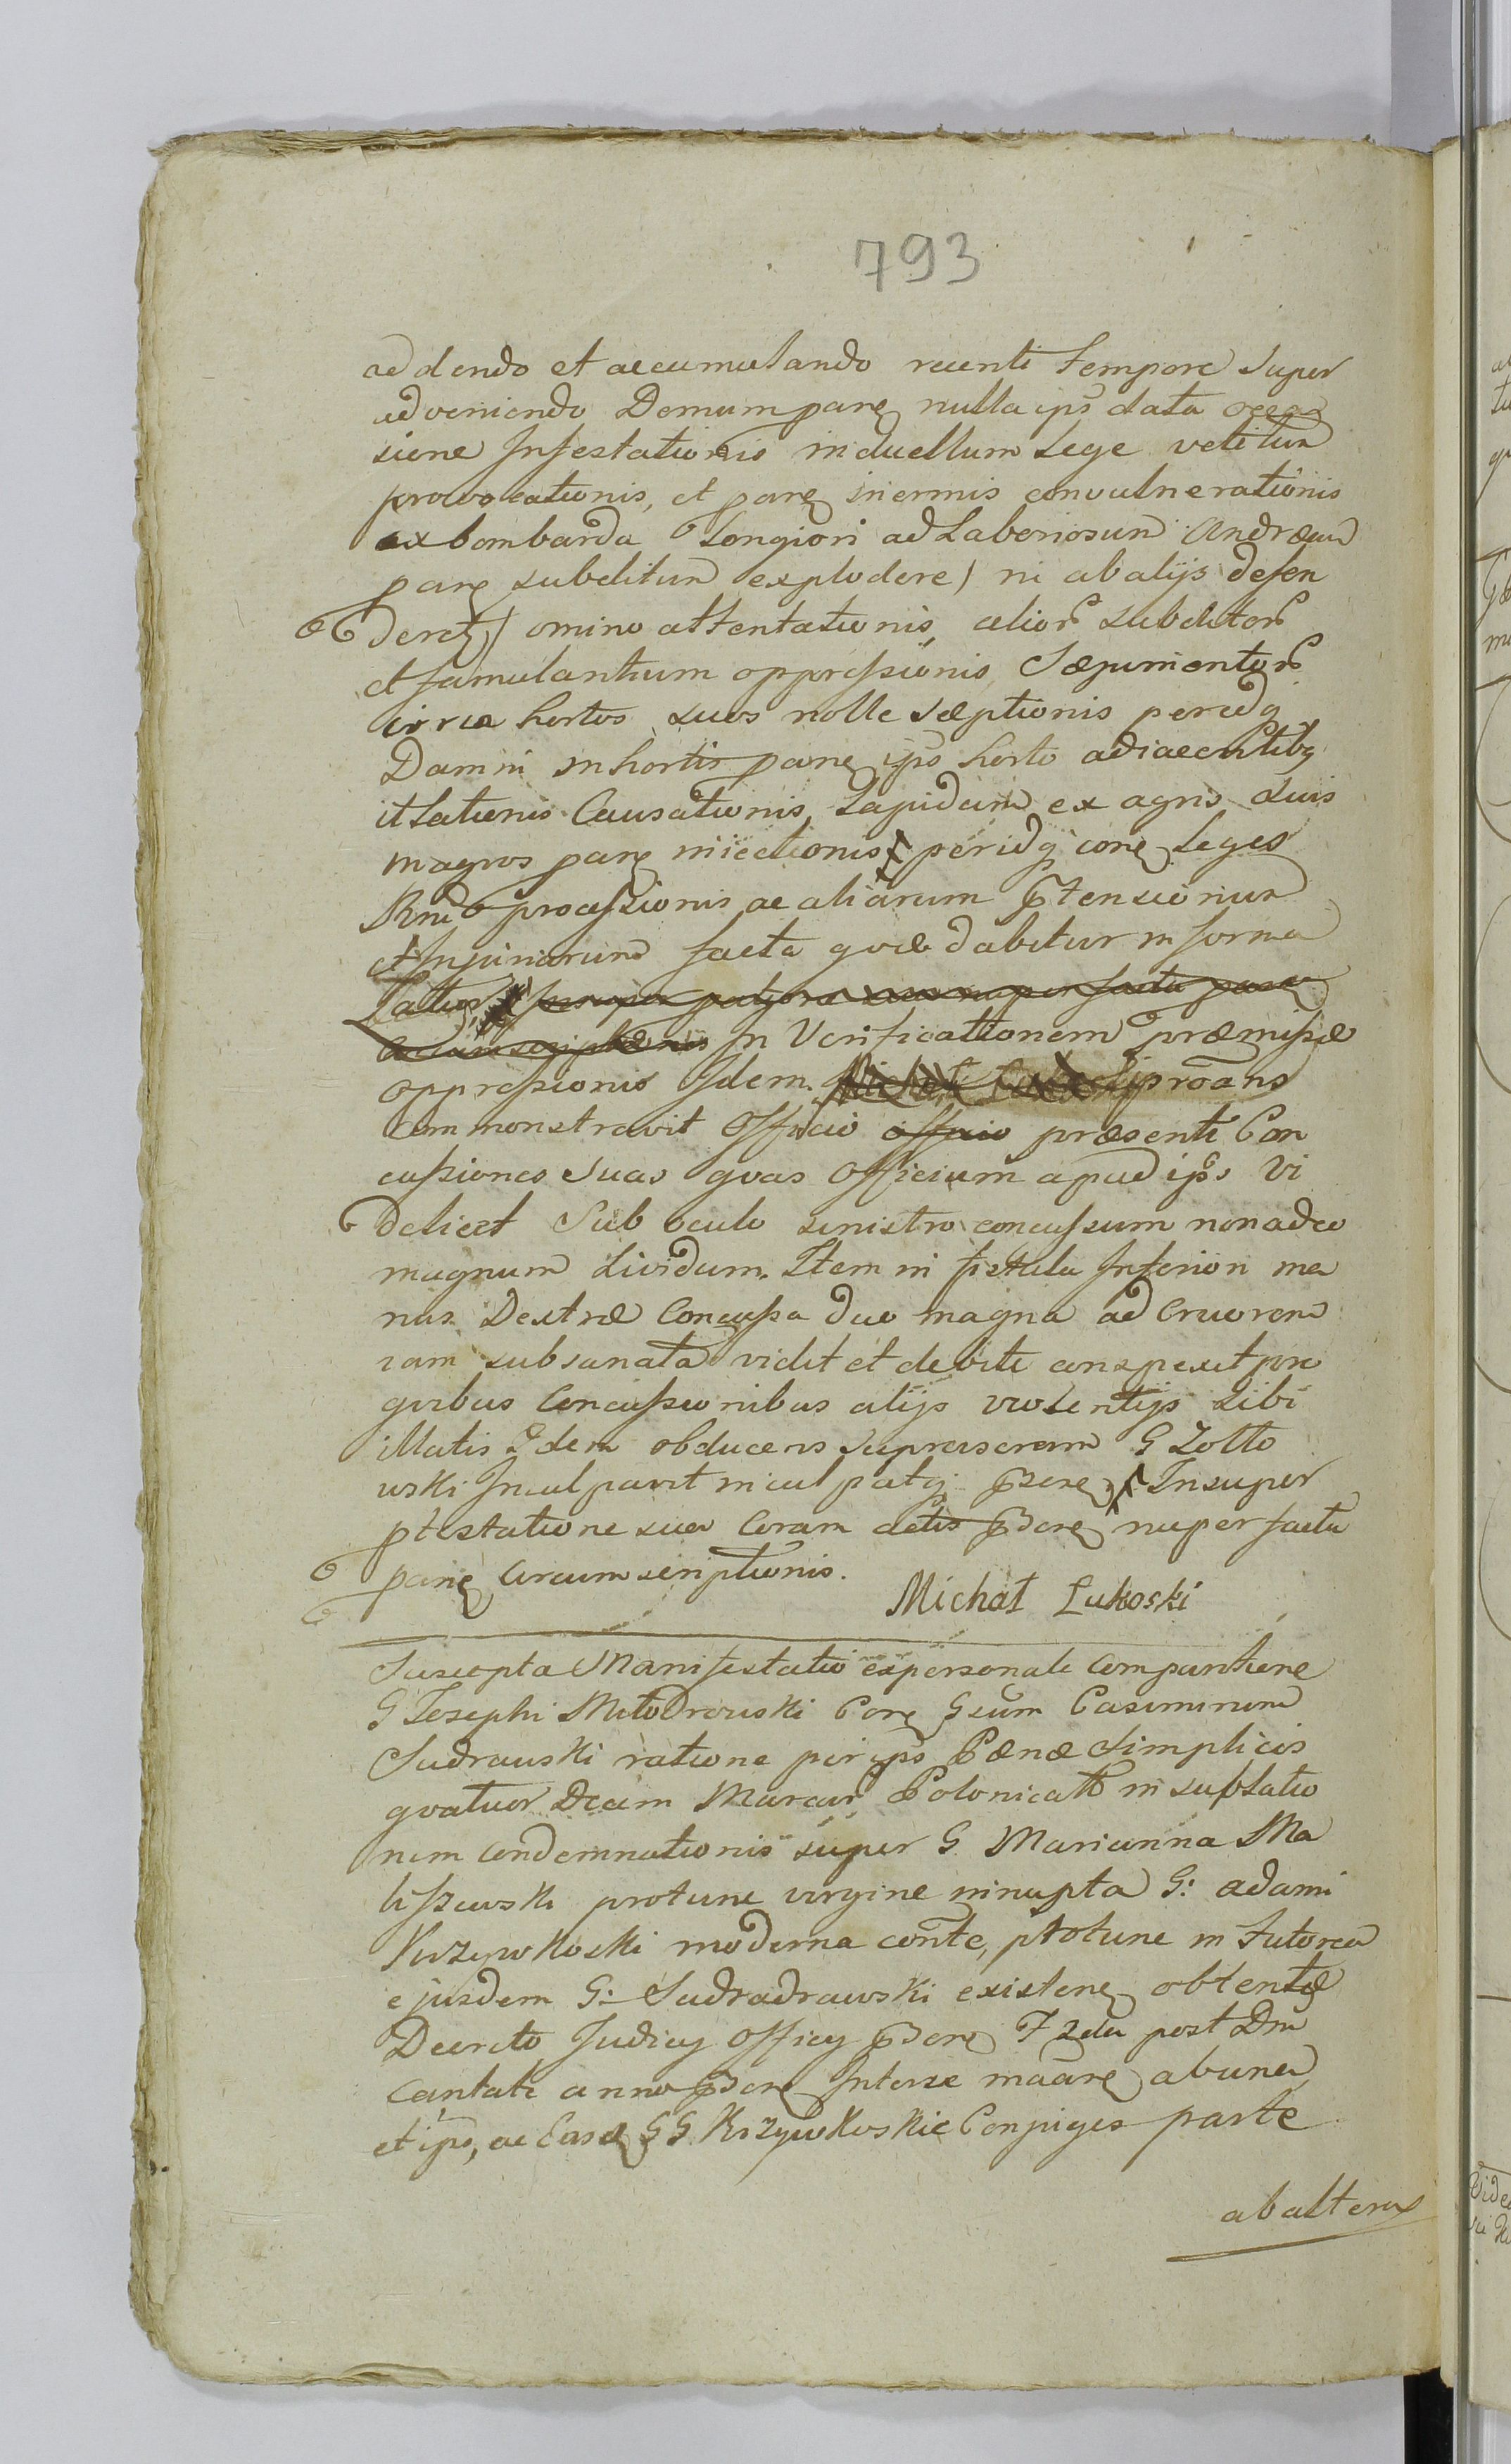 793
addendo et accumulando recenti tempore super
adveniendo Domum parñ nulla ips data occa
sione Infestationis in duellum Lege vetitum
provocationis, et parñ inermis convulnerationis
ex bombarda Longiori ad Laboriosum Andræam
parñ subditum explodere) ni ab alijs defen
deretr) omino attentationis, alior subditor
et famulantium oppressionis, Sæpimentor
circa hortos suos nolle sæptionis peridq
Damni in hortis parñ ips horto adiacentibq
illationis Causationis, Lapidum ex agris suis
in agros parñ iniectionis peridq conñ Leges
Rni processionis ac aliarum ptensionum
et Injuriarum facta qvæ dabitur in forma
Latiori, In Verificationem præmissæ
oppressionis Idem prōans
commonstravit Officio officio præsenti Con
cussiones suas qvas Officium apud ips vi
delicet Sub oculo sinistro concussum non adeo
magnum Lividum. Item in fistula Inferiori ma
nus Dextræ Concussa duo magna ad cruorem
iam subsanata vidit et debite conspexit pro
qvibus Concussionibus alijs violentijs sibi
illatis Idem obducens supranerem G Zołto
wski Inculpavit inculpatq pserñ Insuper
ptestatione sua Coram actis pserñ nuper facta
parñ circumscriptionis.
Michał Łukoski
Suscepta Manifestatio ex personali Comparitione
G Josephi Młodzowski Corñ Gsum Casimirum
Sudrawski ratione per ips Pænæ Simplicis
qvatuor Decem Marcar Polonicalē in sublatio
nem condemnationis super G. Marianna Ma
liszewski protunc virgine innupta G: Adami
Krzywkoski moderna conte, protunc in Tutorea
ejusdem G: Sudradrawski existenñ obtentæ
Decreto Judicij Officij pserñ F 2da post Dm
Cantate anno pserñ Interse maarñ ab una
et ips, ac Easd GG. Krzywkoskie Conjuges parte
ab altera